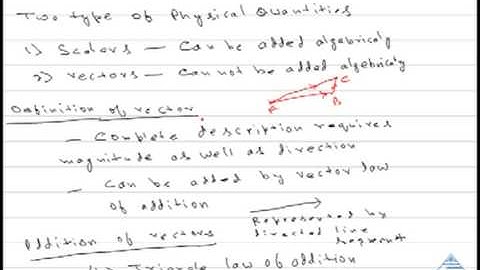 Two type of Physical Quantities
1) Scalers — Can be added algebricaly
2) vectors — Can not be added algebricaly
A B C
Definition of vector
— Complete description requires
magnitude as well as direction
— Can be added by vector law
of addition
Represented by
directed line
Segment
Addition of vectors
(1) Triangle law of addition